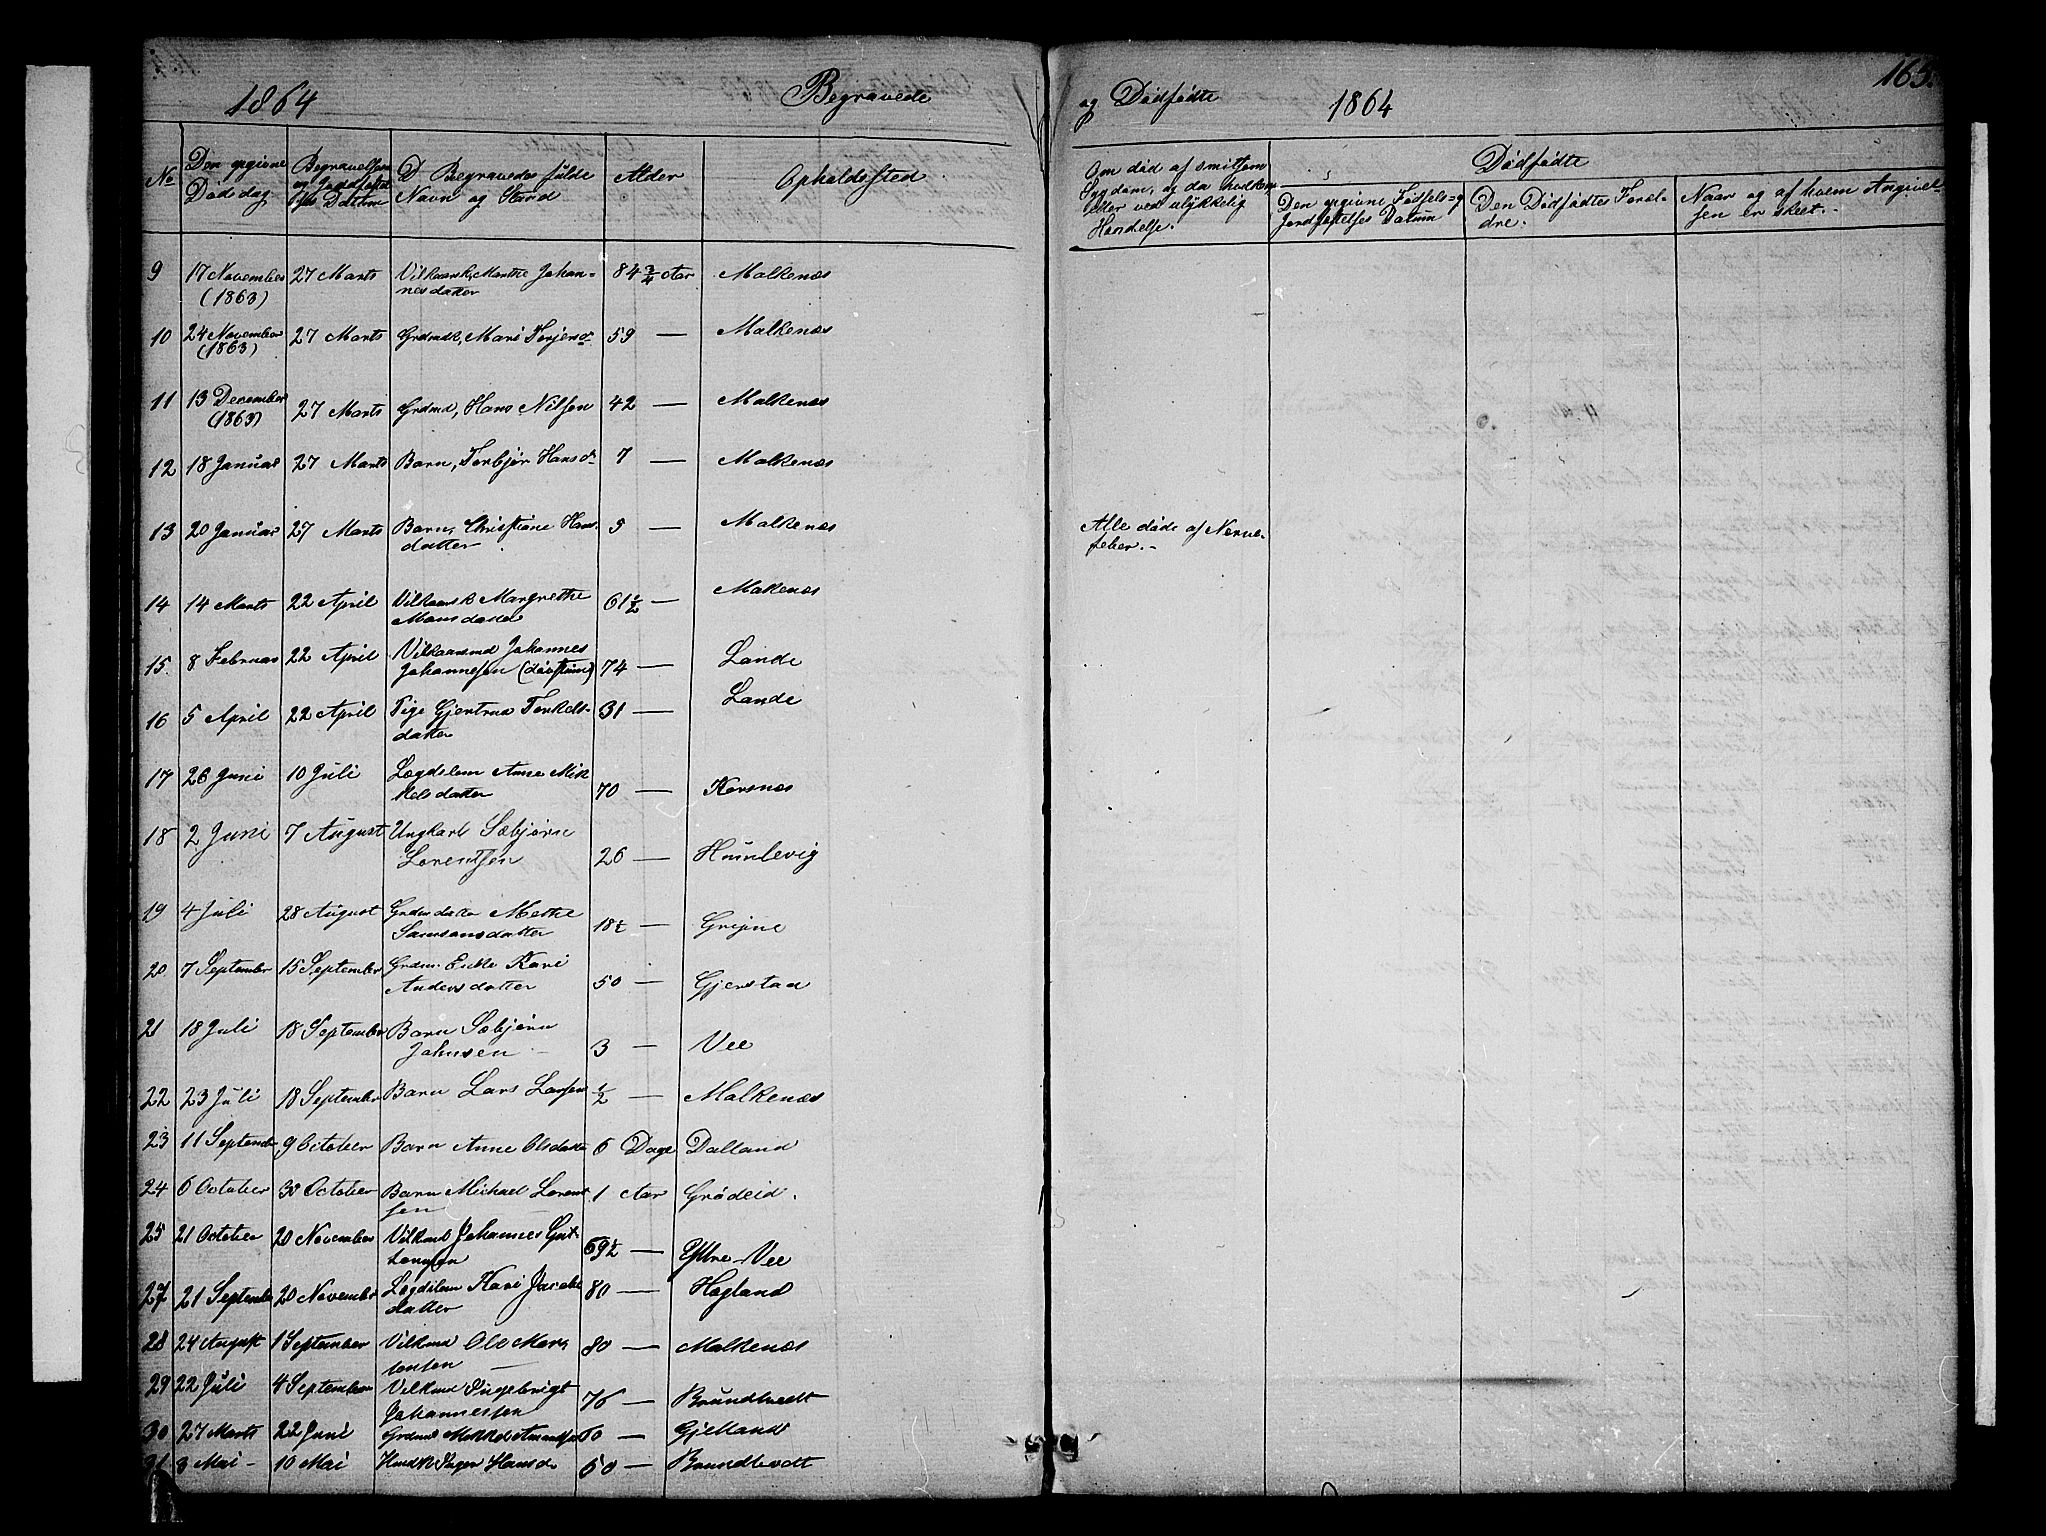 1864 Begravede
og Dødfødte 1864 165.
No
Den opgivne Dødsdag
Begravelsen og Jordfæstelses Datum
D Begravedes fulde Navn og Stand
Alder
Opholdssted
Om død af smitsom Sygdom, og da hvilken eller ved ulykkelig Hændelse.
Dødfødte
Den opgivne Fødsels- og Jordfæstelses Datum
Den Dødfødtes Forældre.
Naar og af hvem Angivelsen er skeet.
9 17 November 27 Marts Vilkaarsk, Marthe Johan- 84 3/4 Aar Malkenæs
(1863) nesdatter
10 24 November 27 Marts Grdmdk, Mari Terjesdr 59 — Malkenæs
(1863)
11 13 December 27 Marts Grdmd, Hans Nilsen 42 — Malkenæs
(1863)
12 18 Januar 27 Marts Barn, Torbjør Hansdr 7 — Malkenæs
13 20 Januar 27 Marts Barn, Christiane Hans- 5 — Malkenæs Alle døde af Nerve-
datter feber.-
14 14 Marts 22 April Vilkaarsk Margrethe 61 1/2 — Makenæs
Monsdatter
15. 8 Februar 22 April Vilkaarsmd Johannes Lande
Johannesen (døvstum) 74 —
16 5 April 22 April Pige Gjertrud Torkels- 31 — Lande
datter
17 26 Juni 10 Juli Lægdslem Anne Mik 70 — Korsnæs
kelsdatter
18 2 Juni 7 August Ungkarl Sæbjørn
Lorentsen 26 — Humlevig
19 4 Juli 28 August Grdmdatter Methe
Samsonsdatter 18 1/2 — Grijne
20 7 September 15 September Grdm. Enke Kari
Andersdatter 50 — Gjerstad
21 18 Juli 18 September Barn Sæbjørn
Johnsen 3 — Vee
22 23 Juli 18 September Barn Lars Larsen 1/2 — Malkenæs
23 11 September 9 October Barn Anne Olsdatter 6 Dage Dalland
24 6 October 30 October Barn Michael Lorent 1 Aar Grødeid.
sen
25 21 October 20 November Vilkmd Johannes Gut- 69 1/2 — Ystre-Vee
tormsen
27 21 September 20 November Lægdslem Kari Jacobs 80 — Hogland
datter
28 24 August 1 September Vilkmd Ole Mor 80 — Malkenæs
tensen
29 22 Juli 4 September Vilkmd Ingebrigt 76 — Brundtvedt
Johannessen
30 27 Marts 22 Juni Grdmd Mikkel 60 — Gjelland
31 3 Mai - 10 Mai Inger Hansd. 50 — Brundtvedt